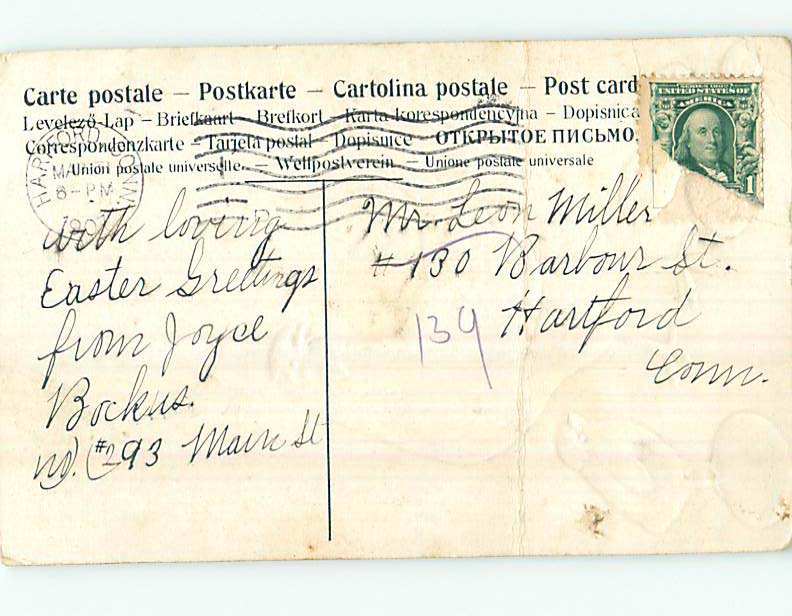 Carte postale – Postkarte – Cartolina postale – Post card
Levelező-Lap – Briefkaart – Brefkort – Karta korespondencyjna – Dopisnica
Correspondenzkarte – Tarjeta postal – Dopisnice ОТКРЫТОЕ ПИСЬМО.
Union postale universelle. – Weltpostverein – Unione postale universale
HARTFORD CONN.
8-PM
SERIES 1902
UNITED STATES OF
AMERICA
1
with loving
Easter Greetings
from Joyce
Bockus.
no. #293 Main St
Mr. Leon Miller
#130 Barbour St.
139
Hartford
Conn.